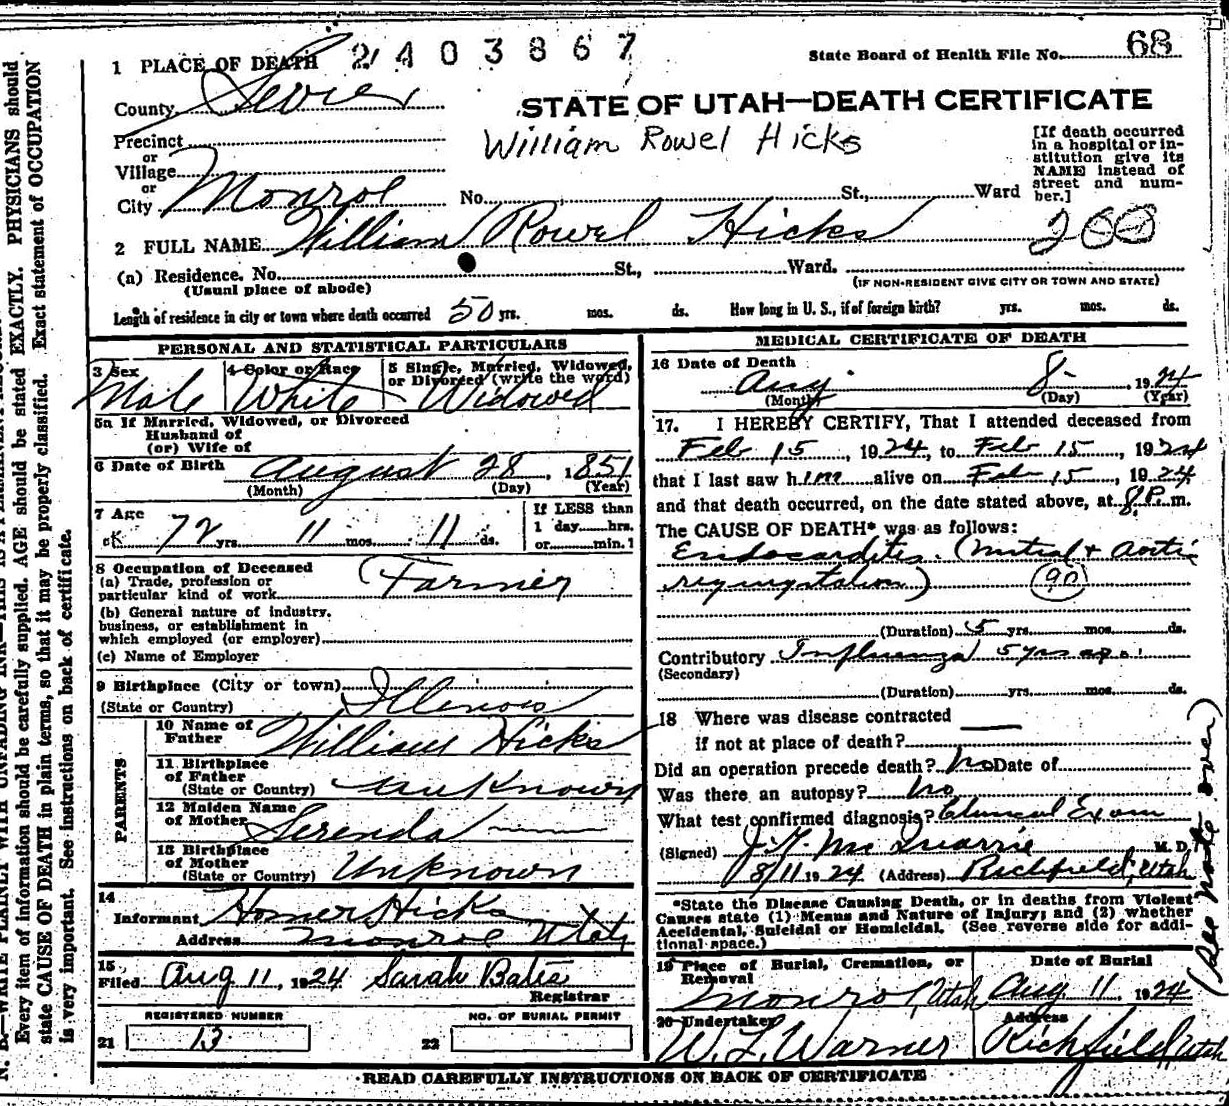 2403867
State Board of Health File No. 68
1 PLACE OF DEATH
County Sevier
STATE OF UTAH—DEATH CERTIFICATE
William Rowel Hicks
Precinct
or
Village
or
City Monroe No. St., Ward
[If death occurred
in a hospital or in-
stitution give its
NAME instead of
street and num-
ber.]
2 FULL NAME William Rowel Hicks
200
(a) Residence. No. St., Ward.
(Usual place of abode) (IF NON-RESIDENT GIVE CITY OR TOWN AND STATE)
Length of residence in city or town where death occurred 50 yrs. mos. ds. How long in U. S., if of foreign birth? yrs. mos. ds.
PERSONAL AND STATISTICAL PARTICULARS
3 Sex 4 Color or Race 5 Single, Married, Widowed,
or Divorced (write the word)
Male White Widowed
5a If Married, Widowed, or Divorced
Husband of
(or) Wife of
6 Date of Birth August 28, 1851
(Month) (Day) (Year)
7 Age
72 yrs 11 mos. 11 ds.
If LESS than
1 day hrs.
or min.
8 Occupation of Deceased
(a) Trade, profession or
particular kind of work Farmer
(b) General nature of industry,
business, or establishment in
which employed (or employer)
(c) Name of Employer
9 Birthplace (City or town)
(State or Country) Illinois
PARENTS
10 Name of
Father William Hicks
11 Birthplace
of Father
(State or Country) Unknown
12 Maiden Name
of Mother Serenda
13 Birthplace
of Mother
(State or Country) Unknown
14
Informant Homer Hicks
Address Monroe Utah
15
Filed Aug 11, 1924 Sarah Bates
Registrar
REGISTERED NUMBER NO. OF BURIAL PERMIT
21 13 22
MEDICAL CERTIFICATE OF DEATH
16 Date of Death
Aug 8 1924
(Month) (Day) (Year)
17. I HEREBY CERTIFY, That I attended deceased from
Feb 15, 1924, to Feb 15, 1924
that I last saw him alive on Feb 15, 1924
and that death occurred, on the date stated above, at 8 P. m.
The CAUSE OF DEATH* was as follows:
Endocardites. (Mitral + Aortic
regurgitation) 90
(Duration) 5 yrs. mos. ds.
Contributory Influenza 5 yrs ago.
(Secondary)
(Duration) yrs. mos. ds.
18 Where was disease contracted
if not at place of death?
Did an operation precede death? No Date of
Was there an autopsy? No
What test confirmed diagnosis? Clinical Exam
(Signed) J. G. McQuarrie M. D.
8/11 1924 (Address) Richfield, Utah
*State the Disease Causing Death, or in deaths from Violent
Causes state (1) Means and Nature of Injury; and (2) whether
Accidental, Suicidal or Homicidal. (See reverse side for addi-
tional space.)
19 Place of Burial, Cremation, or
Removal
Date of Burial
Monroe, Utah Aug 11 1924
20 Undertaker Address
W. L. Warner Richfield, Utah
READ CAREFULLY INSTRUCTIONS ON BACK OF CERTIFICATE
(See note over)
Every item of information should be carefully supplied. AGE should be stated EXACTLY. PHYSICIANS should
state CAUSE OF DEATH in plain terms, so that it may be properly classified. Exact statement of OCCUPATION
is very important. See instructions on back of certificate.